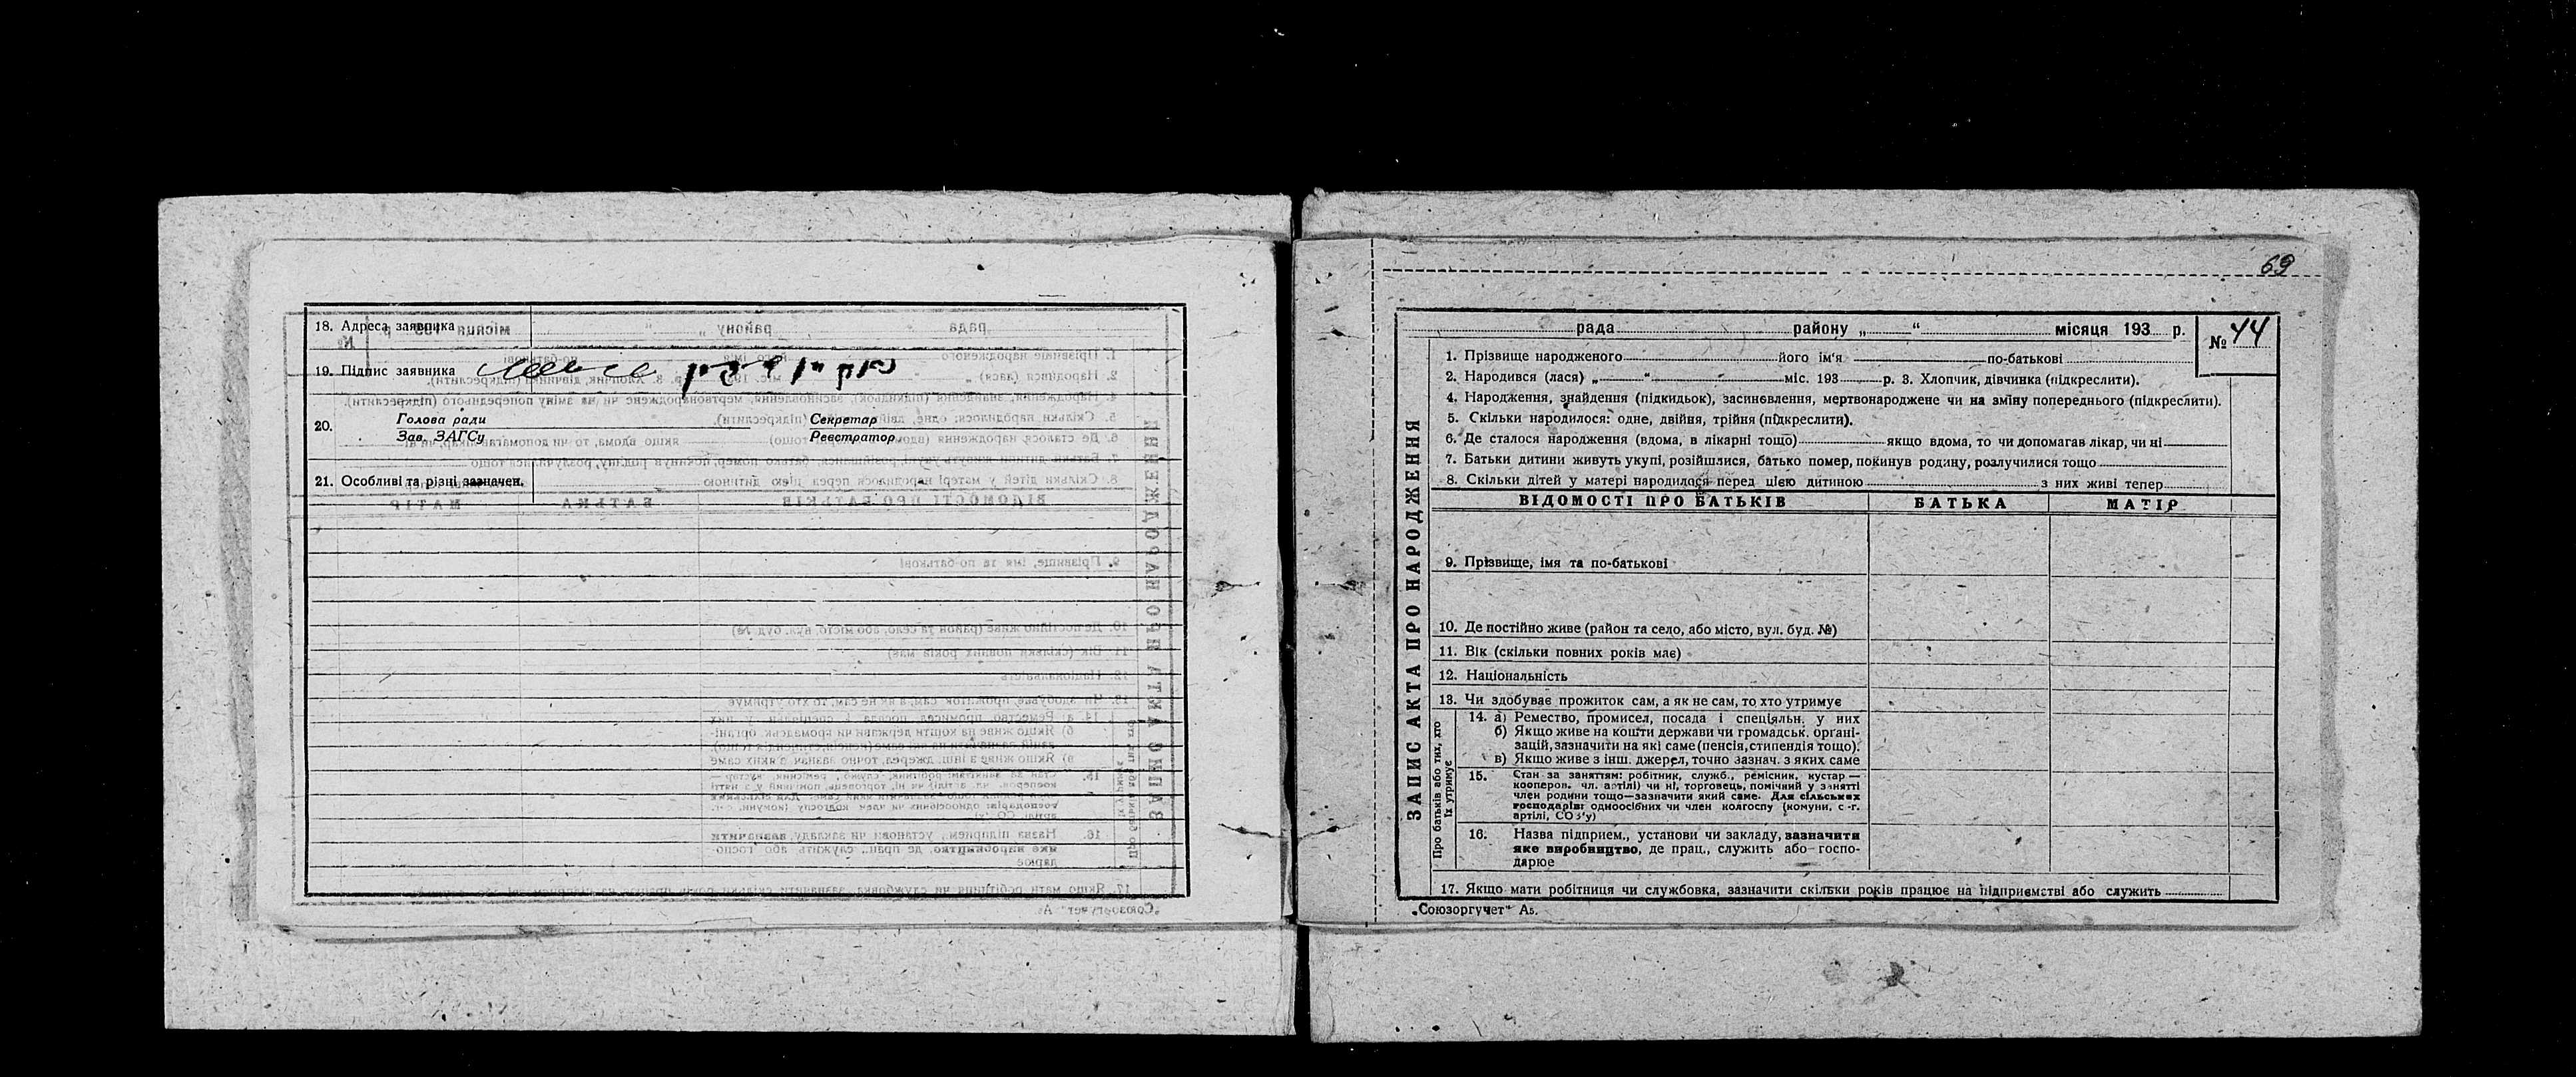 18. Адреса заявника
19. Підпис заявника
20. Голова ради Секретар
Зав. ЗАГСу Реєстратор
21. Особливі та різні зазначен.
69
рада району „ “ місяця 193 р.
№ 44
1. Прізвище народженого його ім'я по-батькові
2. Народився (лася) „ “ міс. 193 р. 3. Хлопчик, дівчинка (підкреслити).
4. Народження, знайдення (підкидьок), засиновлення, мертвонароджене чи на зміну попереднього (підкреслити).
5. Скільки народилося: одне, двійня, трійня (підкреслити).
6. Де сталося народження (вдома, в лікарні тощо) якщо вдома, то чи допомагав лікар, чи ні
7. Батьки дитини живуть укупі, розійшлися, батько помер, покинув родину, розлучилися тощо
8. Скільки дітей у матері народилося перед цією дитиною з них живі тепер
ЗАПИС АКТА ПРО НАРОДЖЕННЯ
ВІДОМОСТІ ПРО БАТЬКІВ БАТЬКА МАТІР
9. Прізвище, імя та по-батькові
10. Де постійно живе (район та село, або місто, вул. буд. №)
11. Вік (скільки повних років має)
12. Національність
13. Чи здобуває прожиток сам, а як не сам, то хто утримує
Про батьків або тих, хто
їх утримує
14. а) Ремество, промисел, посада і спеціяльн. у них
б) Якщо живе на кошти держави чи громадськ. органі-
зацій, зазначити на які саме (пенсія, стипендія тощо).
в) Якщо живе з інш. джерел, точно зазнач. з яких саме
15. Стан за заняттям: робітник, служб., ремісник, кустар —
кооперов. чл. артілі) чи ні, торговець, помічний у занятті
член родини тощо—зазначити який саме. Для сільських
господарів: одноосібних чи член колгоспу (комуни, с.-г.
артілі, СОЗ'у)
16. Назва підприєм., установи чи закладу, зазначити
яке виробництво, де прац., служить або госпо-
дарює
17. Якщо мати робітниця чи службовка, зазначити скільки років працює на підприємстві або служить
„Союзоргучет“ А5.